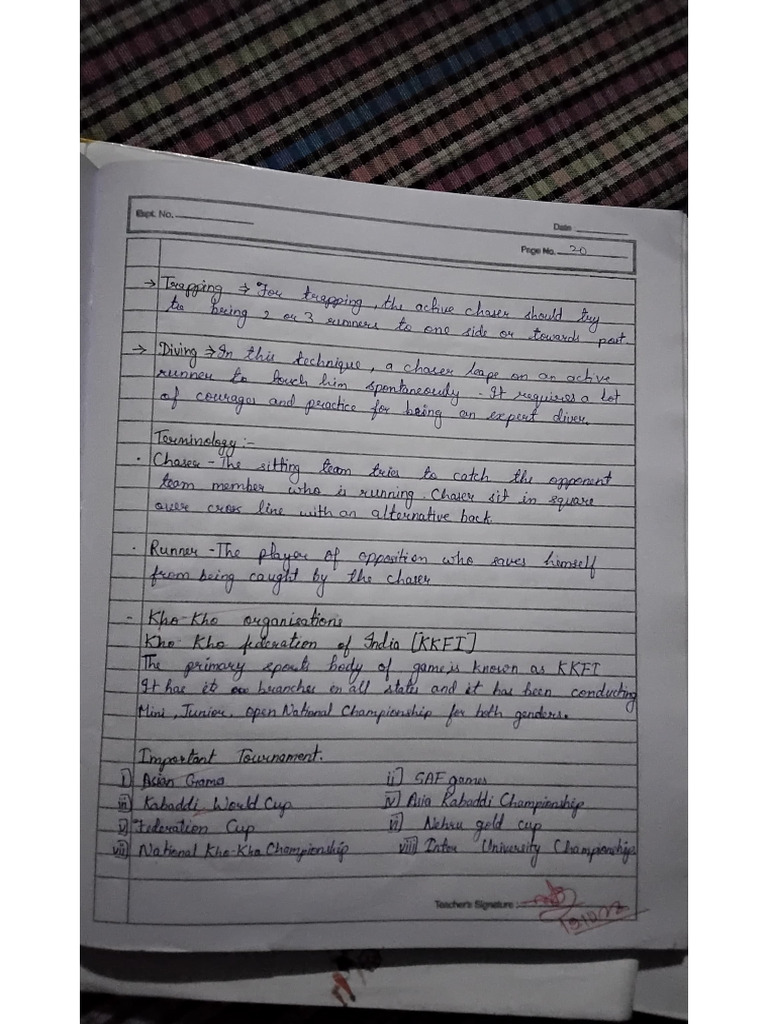 Expt. No.
Date
Page No. 20
→ Trapping ⇒ For trapping, the active chaser should try
to bring 2 or 3 runners to one side or towards post.
→ Diving ⇒ In this technique, a chaser leaps on an active
runner to touch him spontaneously - It requires a lot
of courages and practice for being an expert diver.
Terminology :-
• Chaser - The sitting team tries to catch the opponent
team member who is running. Chaser sit in square
over cross line with an alternative back
• Runner - The player of opposition who saves himself
from being caught by the chaser
- Kho-Kho organisations
Kho-Kho federation of India [KKFI]
The primary sports body of game is known as KKFI
It has it branches in all states and it has been conducting
Mini, Junior, open National Championship for both genders.
Important Tournament.
i] Asian Grams ii] SAF games
iii] Kabaddi World Cup iv] Asia Kabaddi Championship
v] Federation Cup vi] Nehru gold cup
vii] National Kho-Kho Championship viii] Inter University Championships
Teacher's Signature :